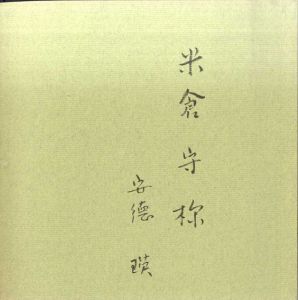 米倉守様
安徳瑛